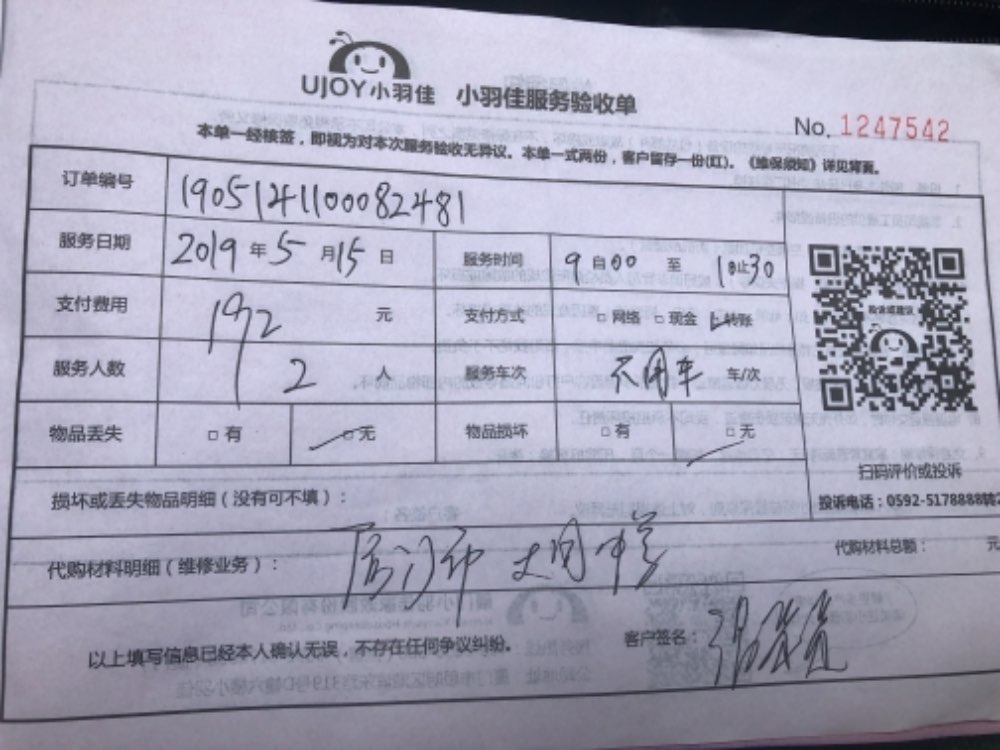 UJOY小羽佳 小羽佳服务验收单
No. 1247542
本单一经核签，即视为对本次服务验收无异议。本单一式两份，客户留存一份(红)。《维保须知》详见背面。
订单编号 190514110082481
服务日期 2019年5月15日 服务时间 9自00至1 止30
支付费用 192元 支付方式 □网络 □现金 转账
服务人数 2人 服务车次 不用车 车/次
物品丢失 □有 □无 物品损坏 □有 □无
扫码评价或投诉
投诉电话：0592-5178888转
损坏或丢失物品明细（没有可不填）：
代购材料明细（维修业务）： 厦门市大同中学 代购材料总额： 元
以上填写信息已经本人确认无误，不存在任何争议纠纷。 客户签名：